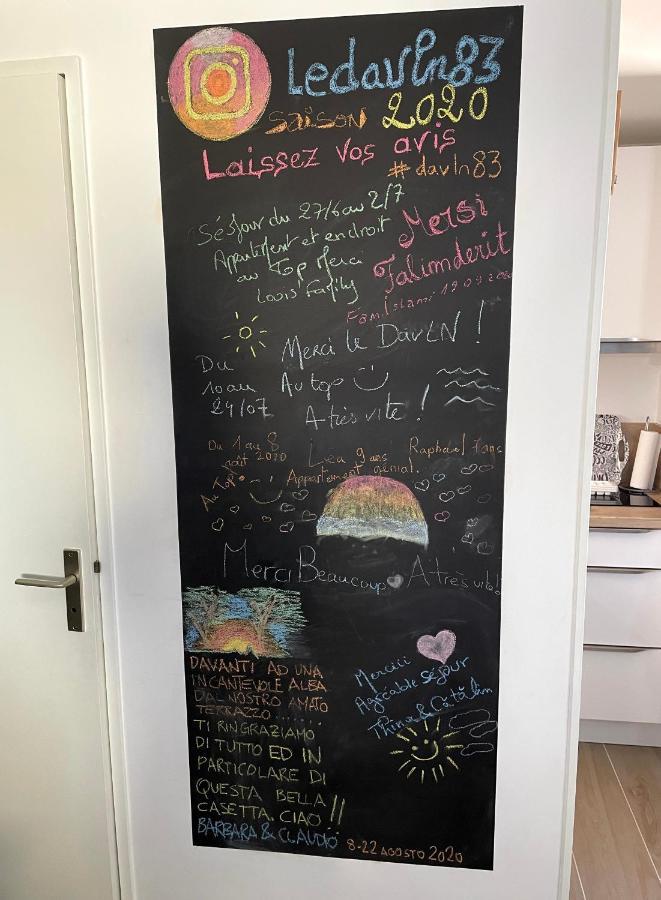 Ledavln83
saison 2020
Laissez vos avis
#davln83
Séjour du 27/6 au 2/7
Appartement et endroit
au Top Merci
Louis' Family
Mersi
Falimderit
Fam. Islami 19.09.2020
Merci le DavLN !
Au top
A très vite !
Du
10 au
24/07
Du 1 au 8
août 2020
Au Top
Léa 9 ans
Raphaël 7 ans
Appartement génial.
Merci Beaucoup A très vite!
DAVANTI AD UNA
INCANTEVOLE ALBA
DAL NOSTRO AMATO
TERRAZZO.......
TI RINGRAZIAMO
DI TUTTO ED IN
PARTICOLARE DI
QUESTA BELLA
CASETTA. CIAO !!
BARBARA & CLAUDIO
8-22 AGOSTO 2020
Merciii
Agréable séjour